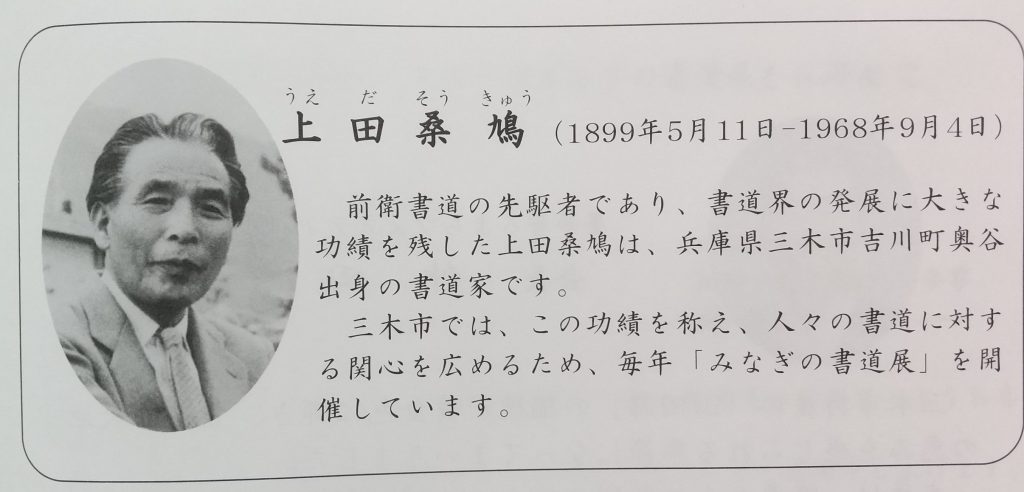 うえ だ そう きゅう
上田桑鳩(1899年5月11日-1968年9月4日)
前衛書道の先駆者であり、書道界の発展に大きな
功績を残した上田桑鳩は、兵庫県三木市吉川町奥谷
出身の書道家です。
三木市では、この功績を称え、人々の書道に対す
る関心を広めるため、毎年「みなぎの書道展」を開
催しています。